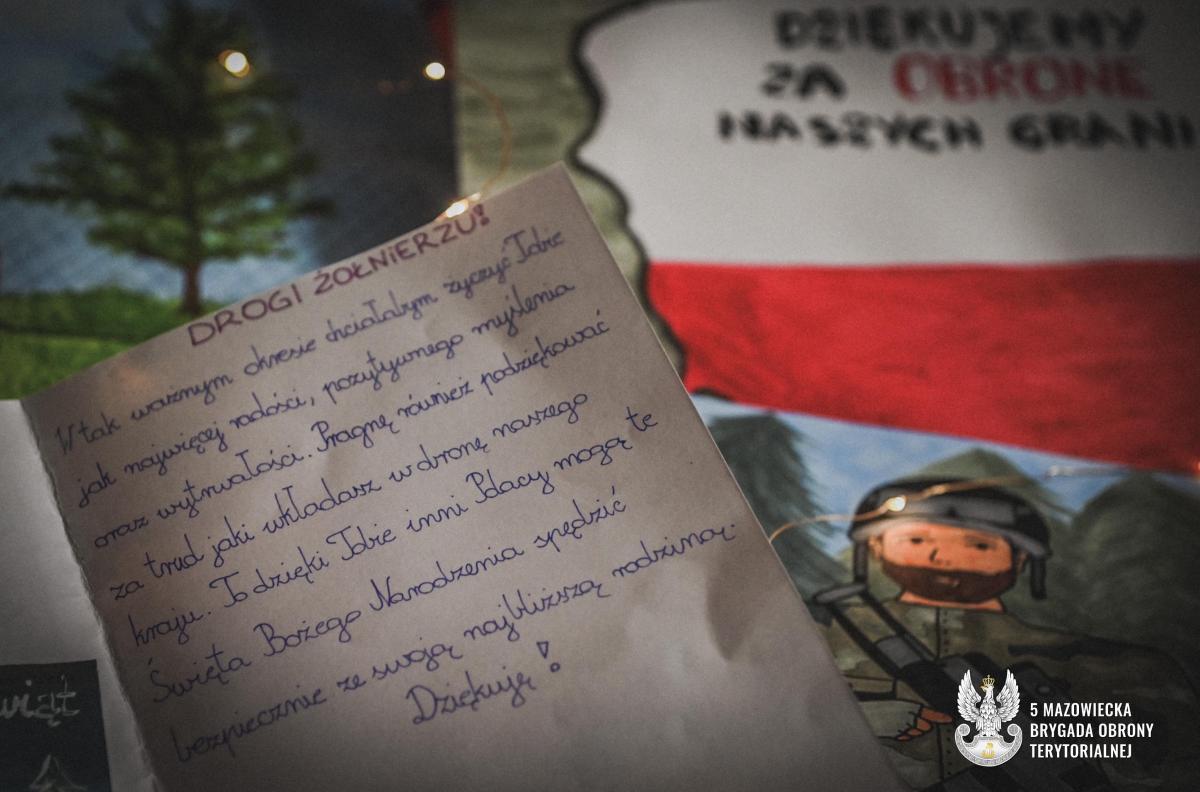 DZIĘKUJEMY
ZA OBRONĘ
NASZYCH GRANI
DROGI ŻOŁNIERZU!
W tak ważnym okresie chciałabym życzyć Tobie
jak najwięcej radości, pozytywnego myślenia
oraz wytrwałości. Pragnę również podziękować
za trud jaki wkładasz w obronę naszego
kraju. To dzięki Tobie inni Polacy mogą te
Święta Bożego Narodzenia spędzić
bezpiecznie ze swoją najbliższą rodziną.
Dziękuję!
wiąt
5 MAZOWIECKA
BRYGADA OBRONY
TERYTORIALNEJ